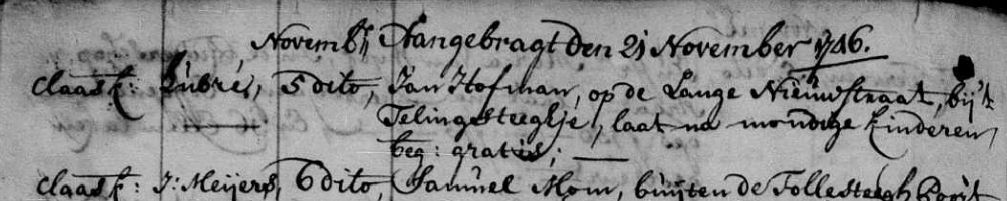 Novembr Aangebragt den 21 November 1746.
Claask: Lubré, 5 dito, Jan Hofman, op de Lange Nieuwstraat, bij 't
Telingsteeghje, laat na mondige kinderen,
beg: gratis;
Claask: J: Meijers, 6 dito, Samuel Mom, buijten de Tollesteegh Poort